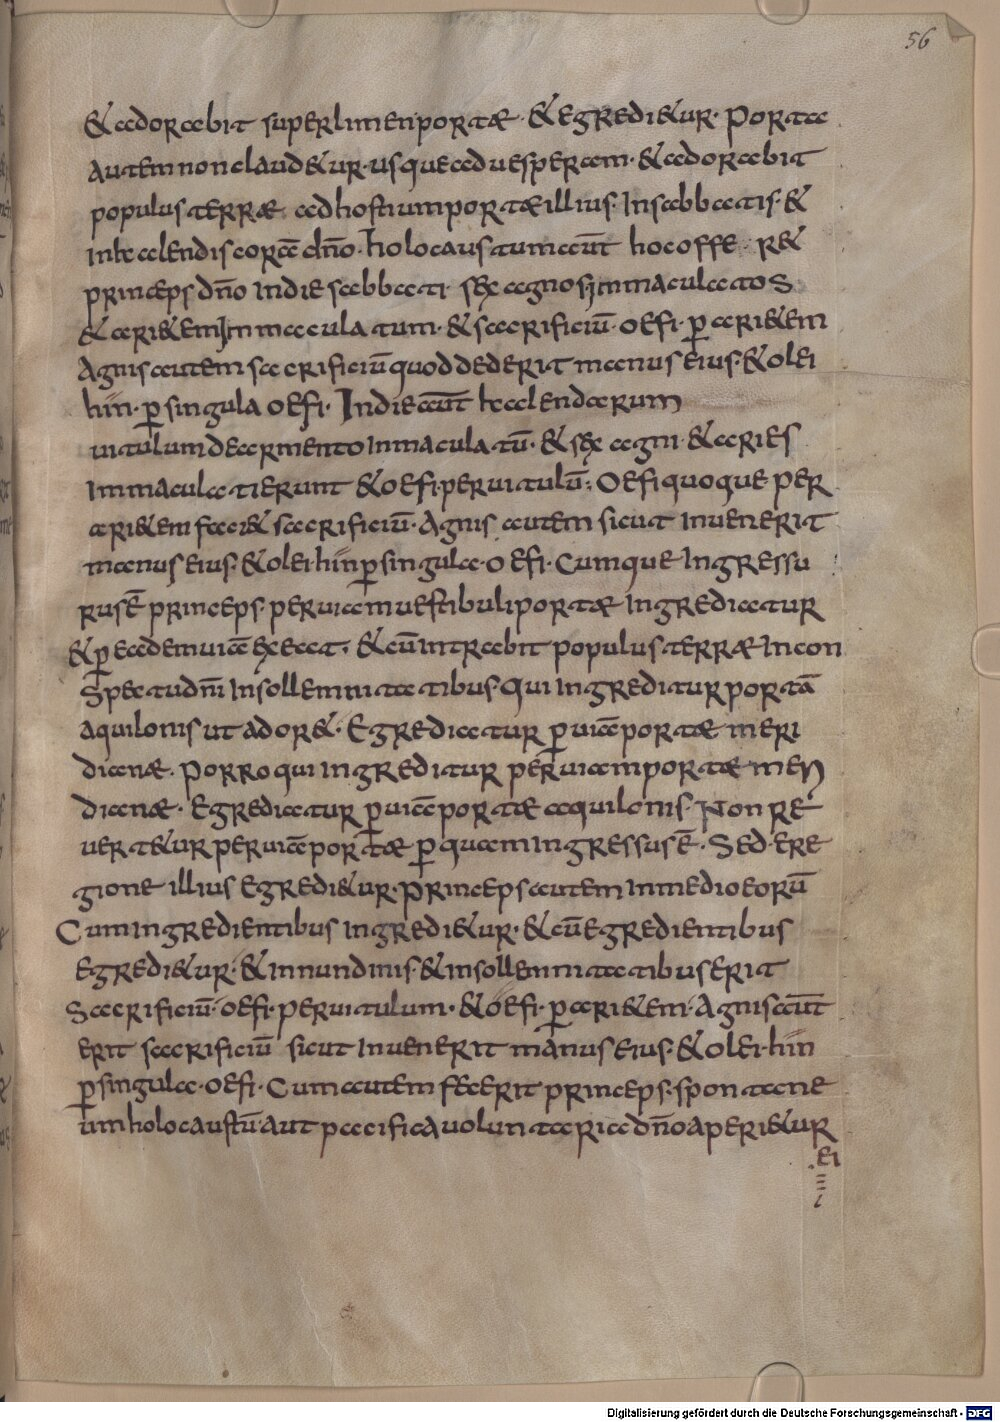 56
& adorabit super limen portae · & egredi&ur · Porta
autem non claud&ur · usque ad uesperam · & adorabit
populus terrae ad hostium portae illius · In sabbatis · &
in kalendis corā dño · holocaustum aūt hoc offe r&
princeps dño in die sabbati · sex agnos inmaculatos
& ari&em inmaculatum · & sacrificiū · oefi · p̱ ari&em
Agnis autem sacrificiū quod dederit manus eius · & olei
hin · p̱ singula oefi · In die aūt kalendarum
uitulum de armento inmaculatū · & sex agni · & aries
Immaculati erunt & oefi · per uitulū · Oefi quoque per
ari&em faci& sacrificiū · Agnis autem sicut inuenerit
manus eius · & olei · hin p̱ singula · oefi · Cumque ingressu
rus ē princeps · per uiam uestibuli portae ingrediatur
& p̱ eadem uiā exeat · & cū intrabit populus terrae in con
spectu dñi in sollemnitatibus · qui ingreditur portā
aquilonis ut ador& · Egrediatur p̱ uiā portae meri
dianae · Porro qui ingreditur per uiam portae meri
dianae · Egrediatur p̱ uiā portae aquilonis · Non re
uert&ur per uiā portae p̱ quam ingressus ē · Sed e re
gione illius egredi&ur · Princeps autem in medio eorū
Cum ingredientibus ingredi&ur · & cū egredientibus
egredi&ur · & in nundinis · & in sollemnitatibus erit
Sacrificiū · oefi · per uitulum · & oefi · p̱ ari&em · Agnis aūt
erit sacrificiū sicut inuenerit manus eius · & olei · hin
p̱ singula · oefi · Cum autem fecerit princeps · spontane
um holocaustū · aut pacifica uoluntaria dño aperi&ur
ei
Digitalisierung gefördert durch die Deutsche Forschungsgemeinschaft - DFG